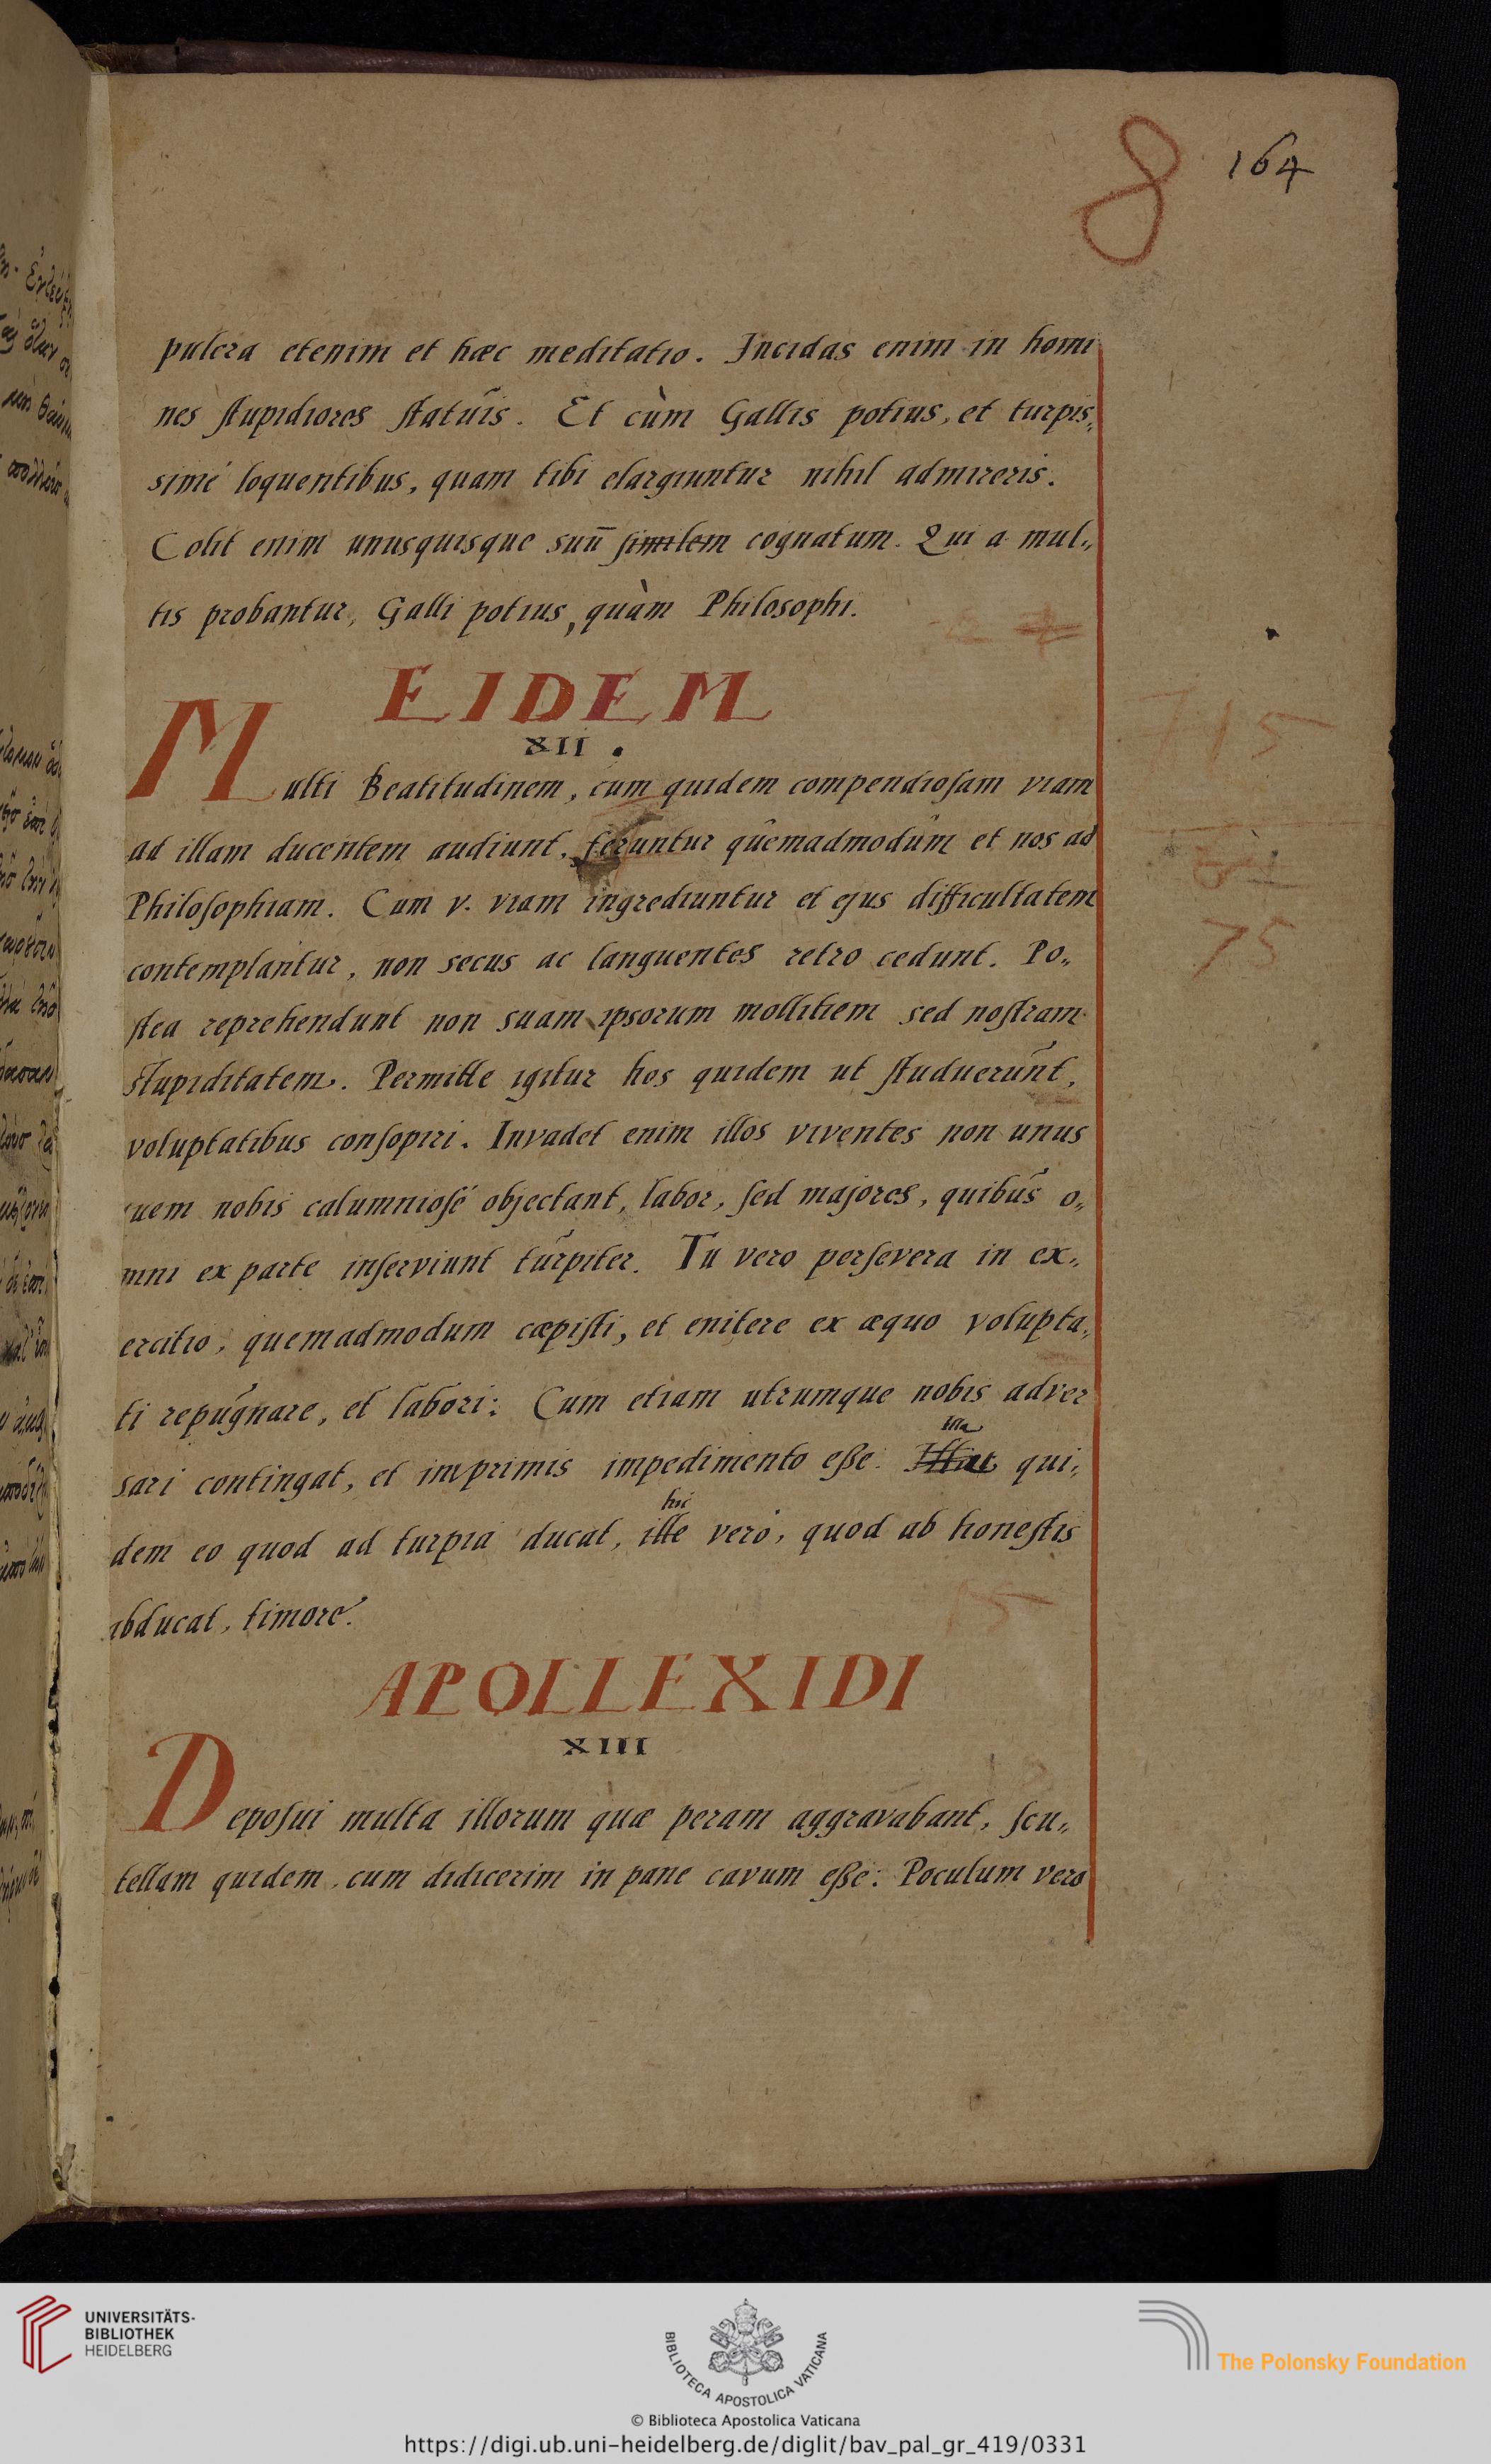 8 164
pulcra etenim et hæc meditatio. Incidas enim in homi
nes ſtupidiores ſtatuis. Et cùm Gallis potius, et turpis„
simé loquentibus, quam tibi elargiuntur nihil admireris.
Colit enim unusquisque suū ſimilem cognatum. Qui a mul„
tis probantur, Galli potius, quàm Philosophi.
EIDEM
XII.
Multi Beatitudinem, cum quidem compendioſam viam
ad illam ducentem audiunt, feruntur quemadmodum et nos ad
Philoſophiam. Cum v. viam ingrediuntur et ejus difficultatem
contemplantur, non secus ac languentes retro cedunt. Po„
ſtea reprehendunt non suam ipsorum mollitiem sed noſtram
ſtupiditatem. Permitte igitur hos quidem ut ſtuduerunt,
voluptatibus conſopiri. Invadet enim illos viventes non unus
quem nobis calumnioſé objectant, labor, ſed majores, quibus o„
mni ex parte inſerviunt turpiter. Tu vero perſevera in ex„
ercitio, quemadmodum cæpiſti, et enitere ex æquo volupta„
ti repugnare, et labori: Cum etiam utrumque nobis adver
sari contingat, et imprimis impedimento eſse. illa qui„
dem eo quod ad turpia ducat, ille hic vero, quod ab honeſtis
abducat, timore.
APOLLEXIDI
XIII
Depoſui multa illorum quæ peram aggravabant, ſcu„
tellam quidem, cum didicerim in pane cavum eſse: Poculum vero
715
75
15
UNIVERSITÄTS-
BIBLIOTHEK
HEIDELBERG
BIBLIOTECA APOSTOLICA VATICANA
The Polonsky Foundation
© Biblioteca Apostolica Vaticana
https://digi.ub.uni-heidelberg.de/diglit/bav_pal_gr_419/0331